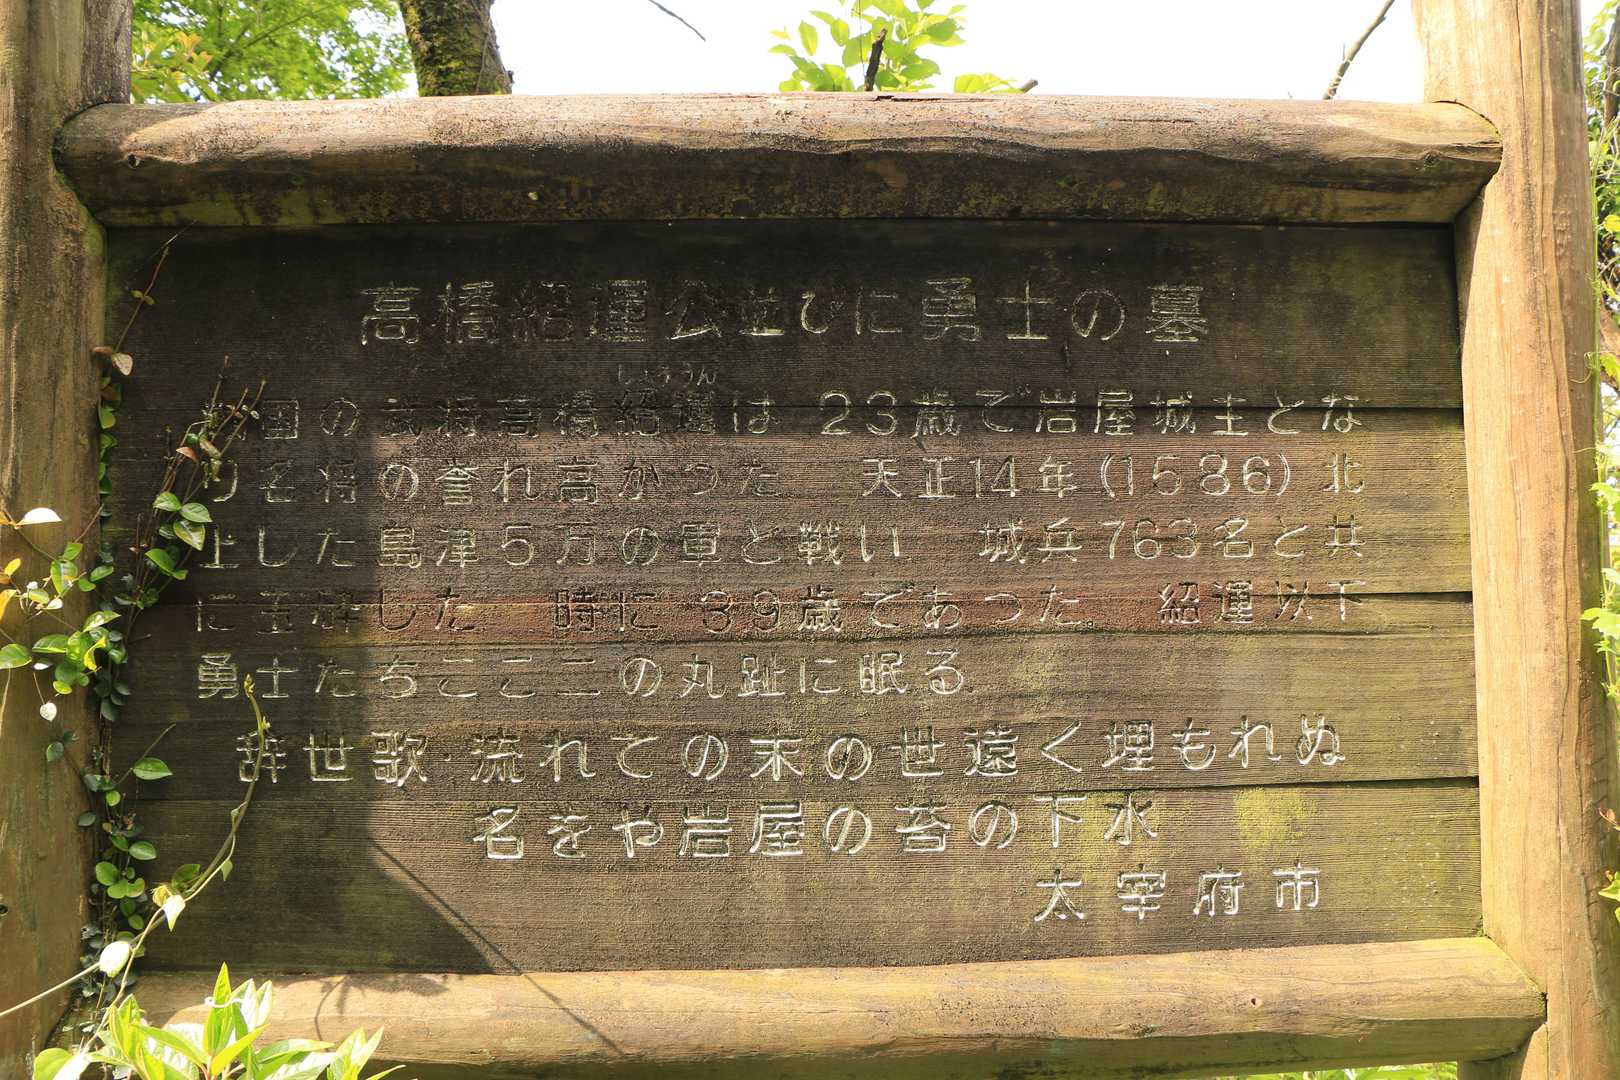 高橋紹運公並びに勇士の墓
じょううん
戦国の武将高橋紹運は 23歳で岩屋城主とな
り名将の誉れ高かった。 天正14年(1586)北
上した島津5万の軍と戦い 城兵763名と共
に玉砕した。 時に 39歳であった。 紹運以下
勇士たちここ二の丸趾に眠る。
辞世歌・流れての末の世遠く埋もれぬ
名をや岩屋の苔の下水
太宰府市